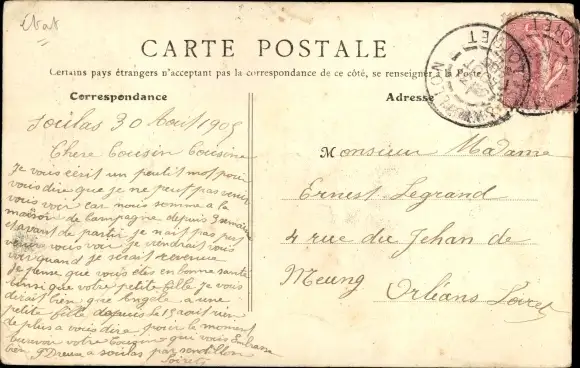 état
CARTE POSTALE
Certains pays étrangers n'acceptent pas la correspondance de ce côté, se renseigner à la Poste
Correspondance
Adresse
Soulas 30 Aout 1905
Chere Cousin Cousine
je vous écrit un peutit mot pour
vous dire que je ne peut pas venir
vous voir car nous somme a la
maison de Campagne depuis 3 semaine
et avant de partir je nait pas put
vous voir je viendrait vous
voir quand je serait revenue
Je pense que vous êtes en bonne santé
ainsi que votre petite fille je vous
dirait bien que Angèle a une
petite fille depuis le 15 aout rien
de plus a vous dire pour le moment
votre Cousine qui vous Embrasse
bien Dreux a soulas par
Loiret
Monsieur Madame
Ernest Legrand
4 rue du Jehan de
Meung Orléans Loiret